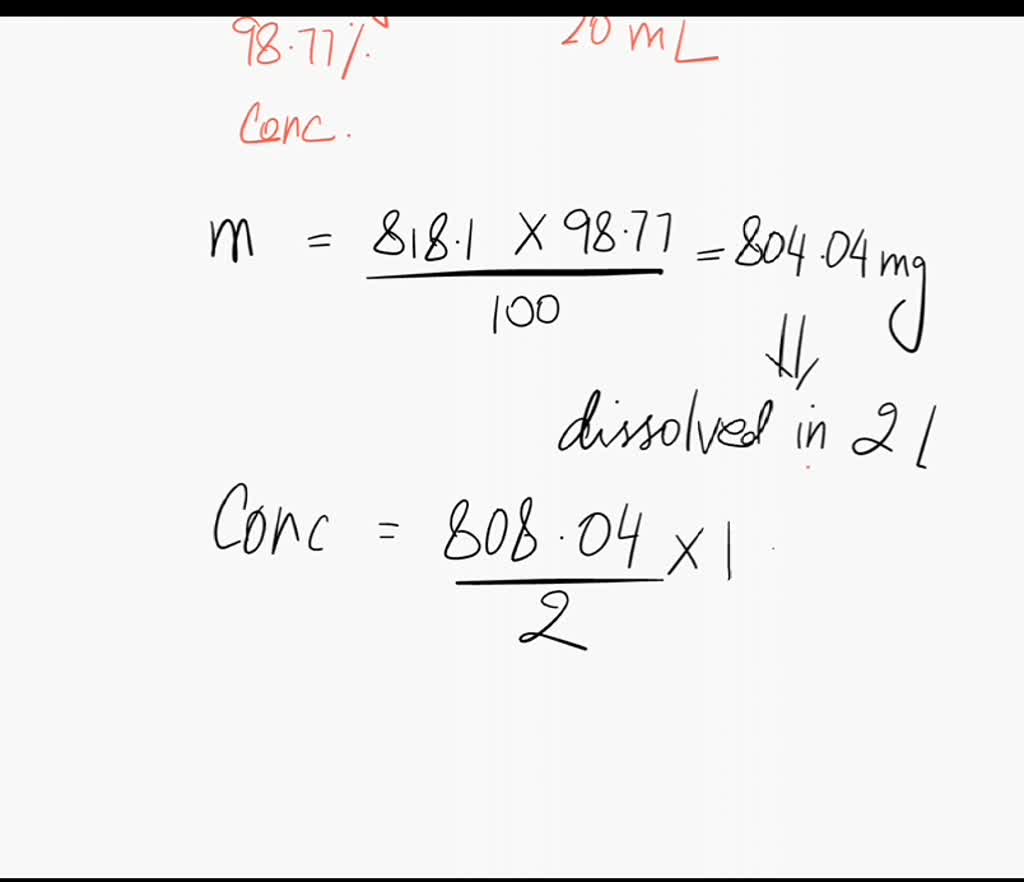 98.77% 20 mL
Conc.
m = 818.1 X 98.77 = 804.04 mg
100
dissolved in 2 l
Conc = 808.04 X 1
2